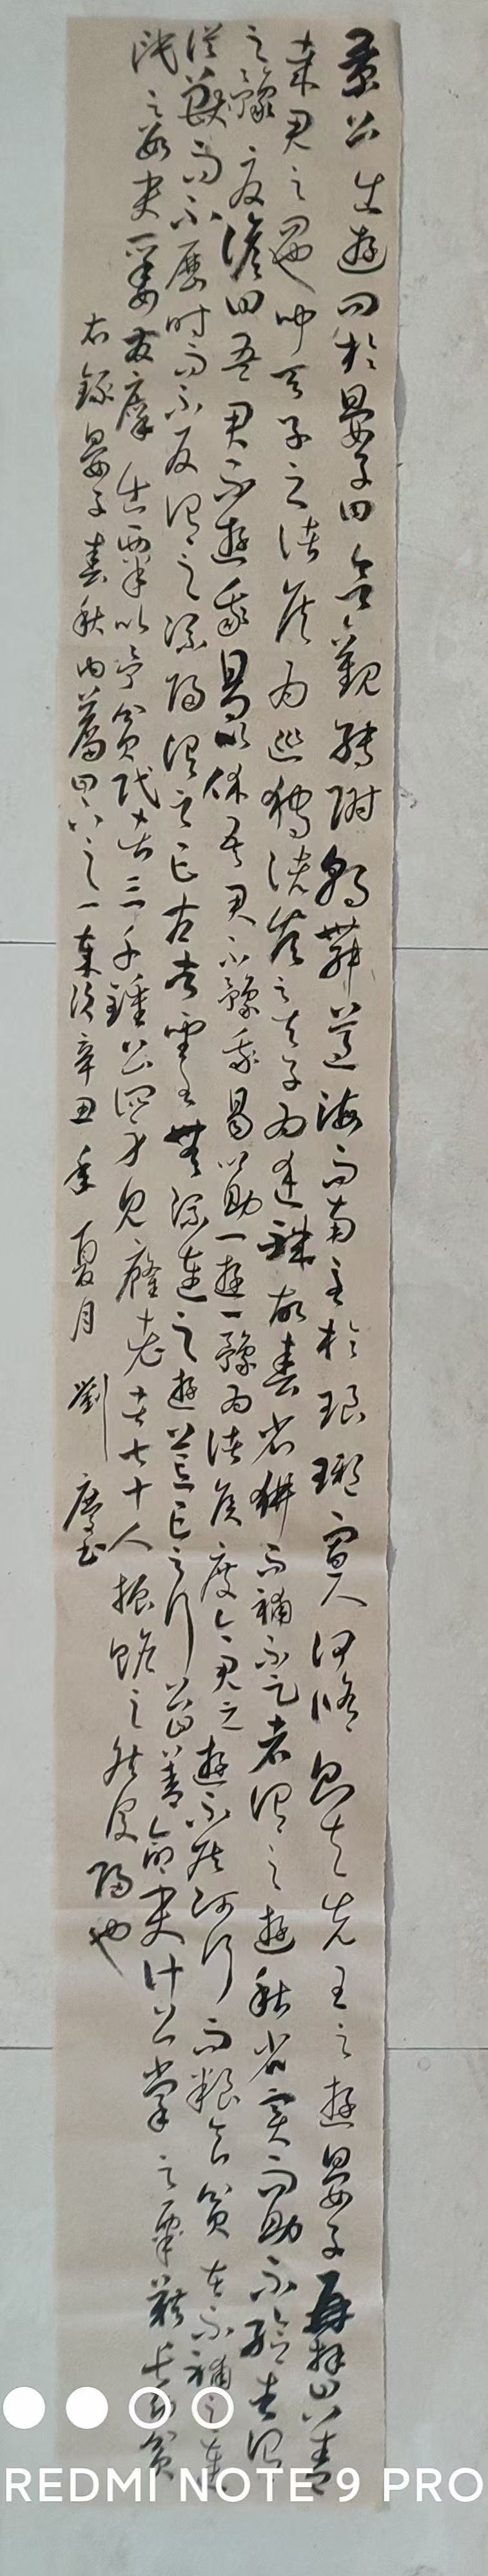 景公出遊問於晏子曰吾觀轉附朝舞遵海而南至於琅琊寡人何修則夫先王之遊晏子再拜曰善
哉君之問也聞天子之諸侯為巡狩諸侯之天子為述職故春省耕而補不足者謂之遊秋省實而助不給者謂
之豫夏諺曰吾君不遊我曷以休吾君不豫我曷以助一遊一豫為諸侯度今君之遊不然師行而糧食貧苦不補勞
從獸而不歷時而不反謂之流歸謂之亡古者聖王無流連之遊荒亡之行公曰善命吏計公掌之粟藉長幼貧
氓之數吏委發廩出粟以予貧民者三千鍾公所身見癃老者七十人振贍之然後歸也
右錄晏子春秋內篇問下之一歲次辛丑年夏月劉慶玉
REDMI NOTE 9 PRO